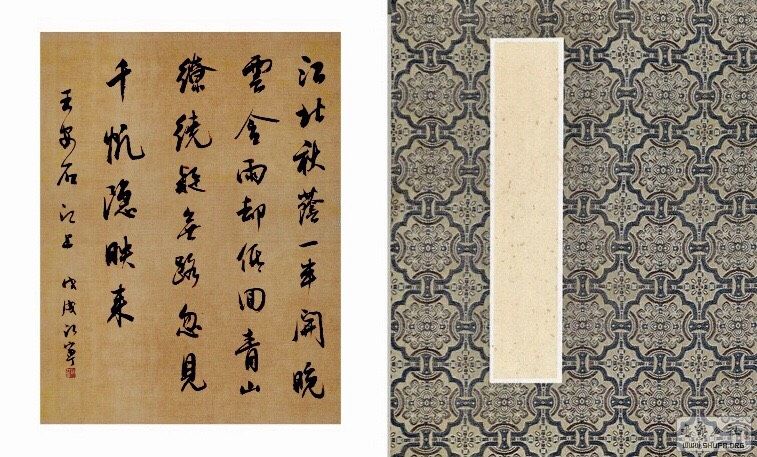 江北秋蔭一半開晚
雲含雨却低回青山
繚繞疑無路忽見
千帆隐映来
王安石江上 戊戌
WWW.SHUFA.ORG